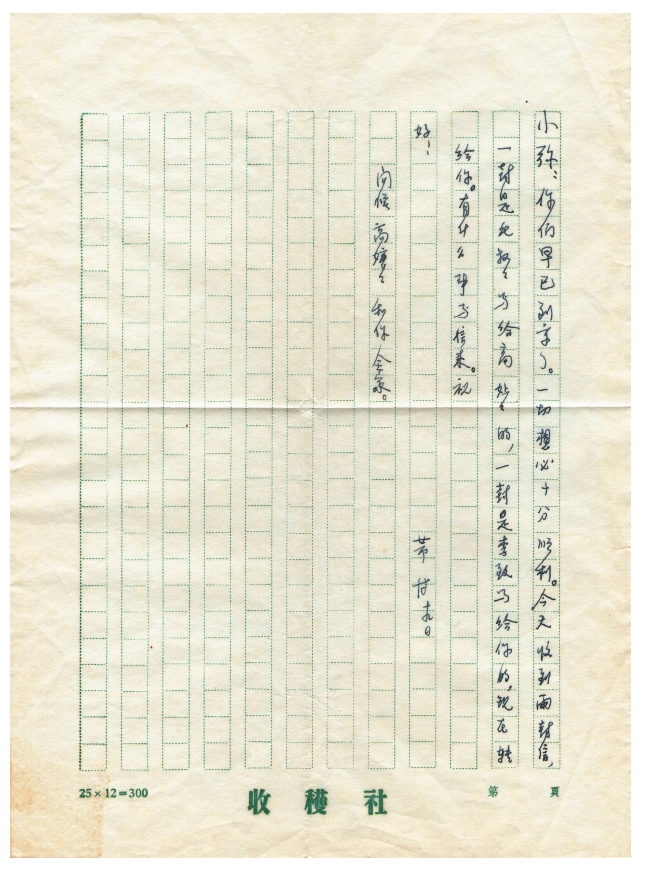 小弥:你们早已到京了。一切想必十分顺利。今天收到两封信,
一封是 写给高 的,一封是李致写给你的,现在转
给你。有什么事写信来。祝
好!
芾甘 日
问候高嬢々和你全家。
25×12=300
收穫社
第 頁